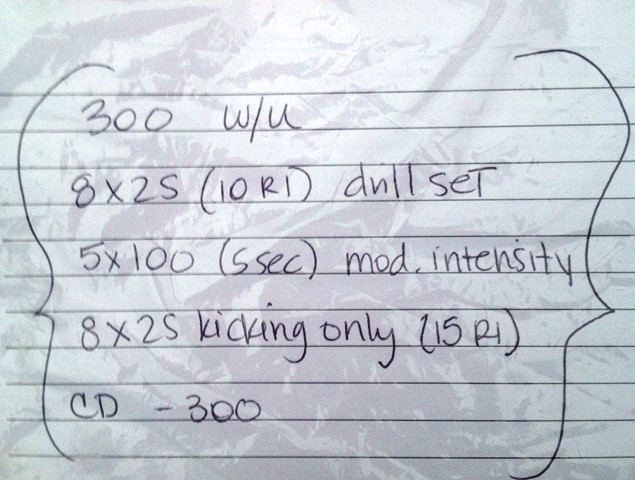 300 W/U
8x25 (10 RI) drill set
5x100 (5sec) mod. intensity
8x25 kicking only (15 RI)
CD - 300